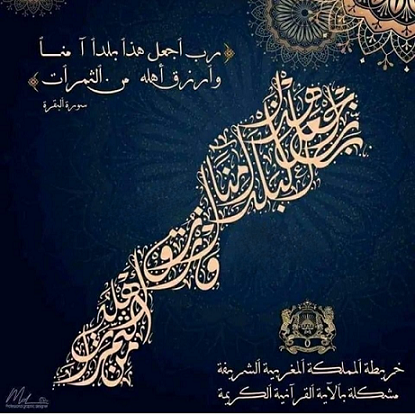 ﴿رب اجعل هذا بلدا آمنا
وارزق أهله من الثمرات﴾
سورة البقرة
رب اجعل هذا
البلد آمنا
وارزق
أهله
من الثمرات
خريطة المملكة المغربية الشريفة
مشكلة بالآية القرآنية الكريمة